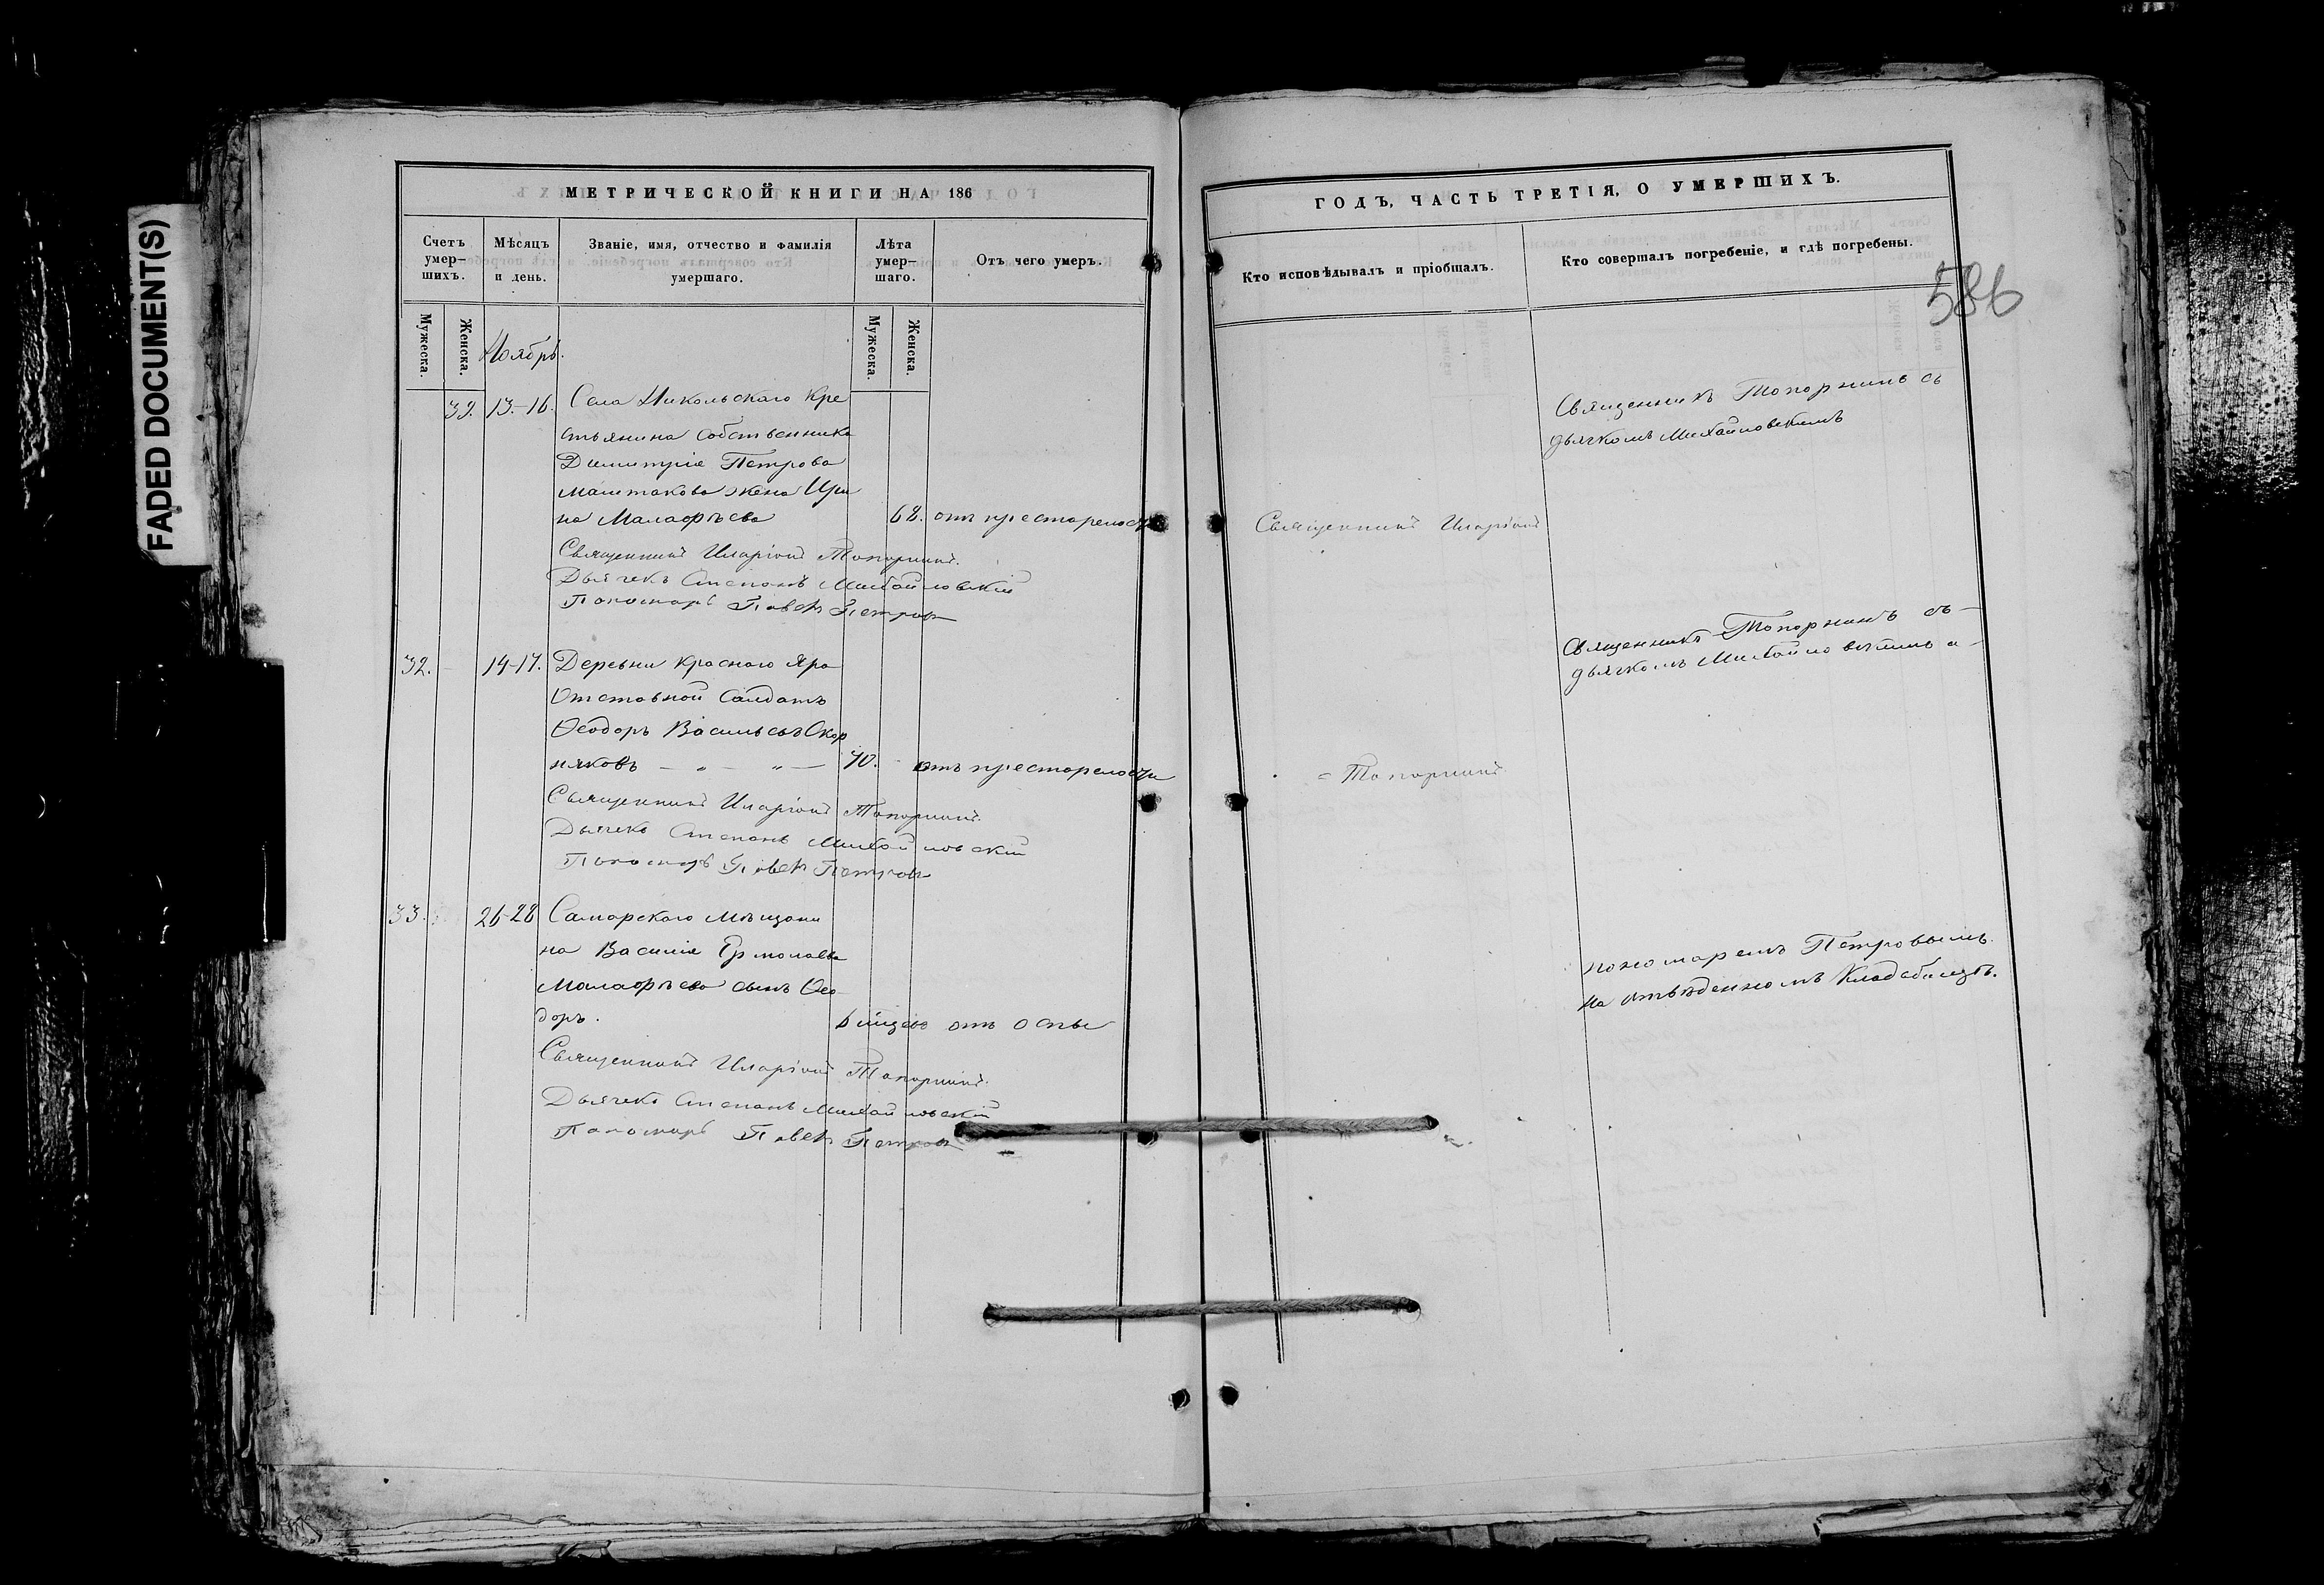 FADED DOCUMENT(S)
МЕТРИЧЕСКОЙ КНИГИ НА 186
Счетъ умер-
шихъ.
Мѣсяцъ
и день.
Званіе, имя, отчество и фамилія
умершаго.
Лѣта
умер-
шаго.
Отъ чего умеръ.
Мужеска.
Женска.
Мужеска.
Женска.
Ноябрь.
39. 13.-16. Села Никольскаго Кре
стьянина собственника
Димитріе Петрова
Маштакова жена Ири
на Малафѣева 68. отъ престарелости
Священникъ Иларіонъ Топорнинъ.
Дьячекъ Степанъ Михайловскій
Пономарь Павелъ Петровъ
32. 14-17. Деревни Краснаго Яра
Отставной Салдатъ
Ѳеодоръ Васильевъ Скор
няковъ — „ — „ — 70. отъ престарелости
Священникъ Иларіонъ Топорнинъ.
Дьячекъ Степанъ Михайловскій
Пономарь Павелъ Петровъ
33. 26-28 Самарскаго Мѣщани
на Василія Ермолаева
Малафѣева сынъ Ѳео
доръ. отъ Оспы
Священникъ Иларіонъ Топорнинъ.
Дьячекъ Степанъ Михайловскій
Пономарь Павелъ Петровъ
ГОДЪ, ЧАСТЬ ТРЕТІЯ, О УМЕРШИХЪ.
Кто исповѣдывалъ и пріобщалъ.
Кто совершалъ погребеніе, и гдѣ погребены.
586
Священникъ Топорнинъ съ
дьячкомъ Михайловскимъ
Священникъ Иларіонъ
Священникъ Топорнинъ съ —
дьячкомъ Михайловскимъ и -
= Топорнинъ
пономаремъ Петровымъ.
На отвѣденномъ Кладбищѣ.